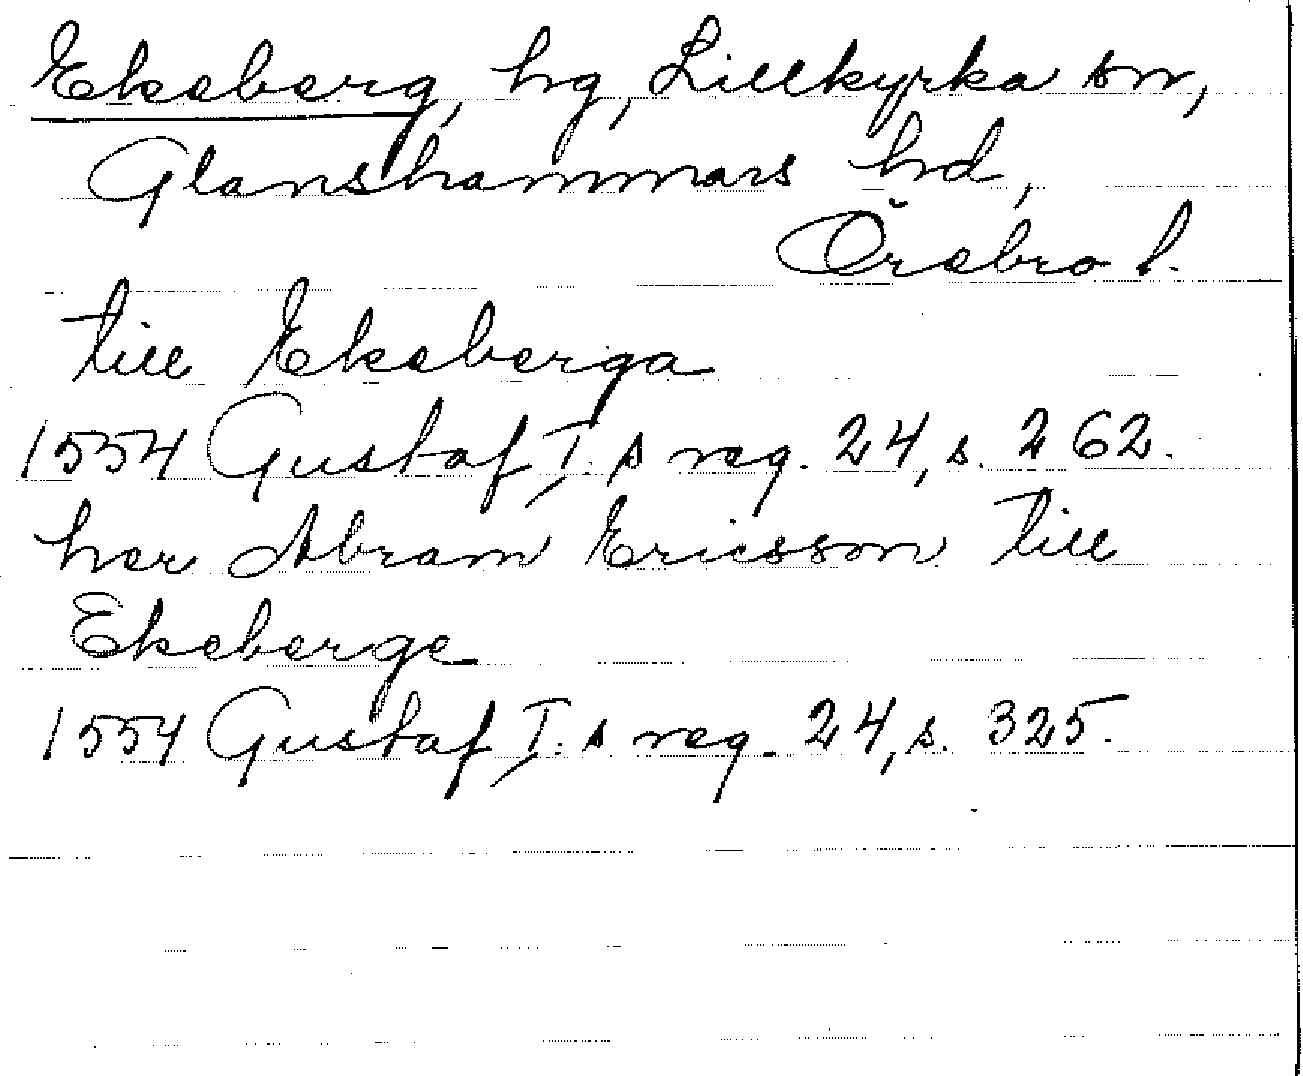 Ekeberg, hg, Lillkyrka sn,
Glanshammars hd,
Örebro l.
till Ekeberga
1554 Gustaf I:s reg. 24, s. 262.
her Abram Ericsson till
Ekeberge
1554 Gustaf I:s reg. 24, s. 325.